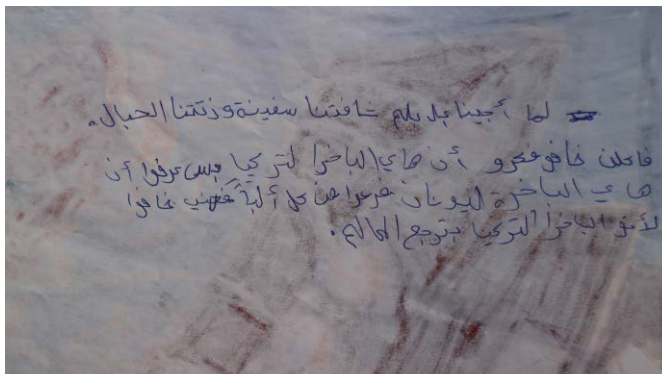 لما أجينا بلبلم شافتنا سفينة وزتتنا الحبال.
فاعلن خافو فكرو أن هاي الباخرا لتركيا بس عرفوا أن
هاي الباخرة ليونان فرحوا من كل
خافوا
لأنو الباخرا التركيا بترجع العالم.